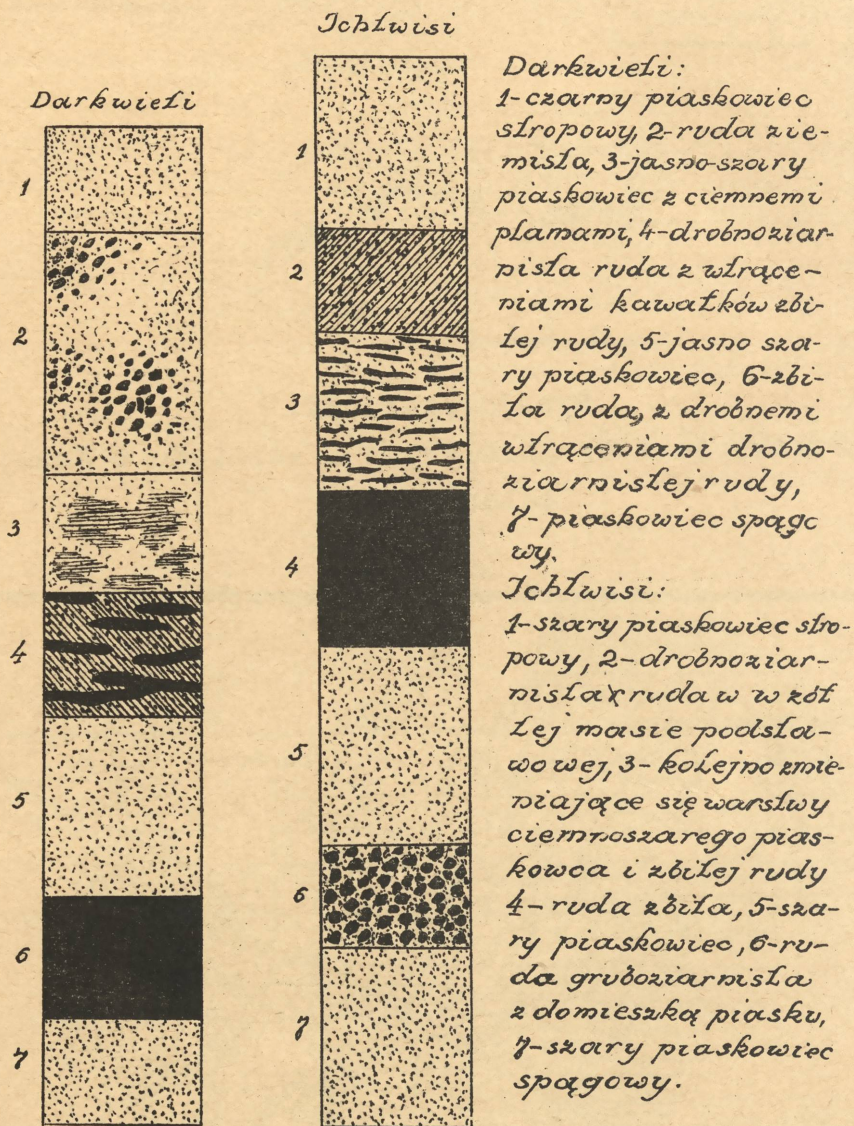 Ichtwisi
Darkwieti
1
2
3
4
5
6
7
1
2
3
4
5
6
7
Darkwieti:
1-czarny piaskowiec
stropowy, 2-ruda zie-
mista, 3-jasno-szary
piaskowiec z ciemnemi
plamami, 4-drobnoziar-
nista ruda z wtrące-
niami kawałków zbi-
tej rudy, 5-jasno sza-
ry piaskowiec, 6-zbi-
ta ruda, z drobnemi
wtrąceniami drobno-
ziarnistej rudy,
7-piaskowiec spągo
wy.
Ichtwisi:
1-szary piaskowiec stro-
powy, 2-drobnoziar-
nista ruda w w żół
tej masie podsta-
wowej, 3-kolejno zmie-
niające się warstwy
ciemnoszarego pias-
kowca i zbitej rudy
4-ruda zbita, 5-sza-
ry piaskowiec, 6-ru-
da gruboziarnista
z domieszką piasku,
7-szary piaskowiec
spągowy.